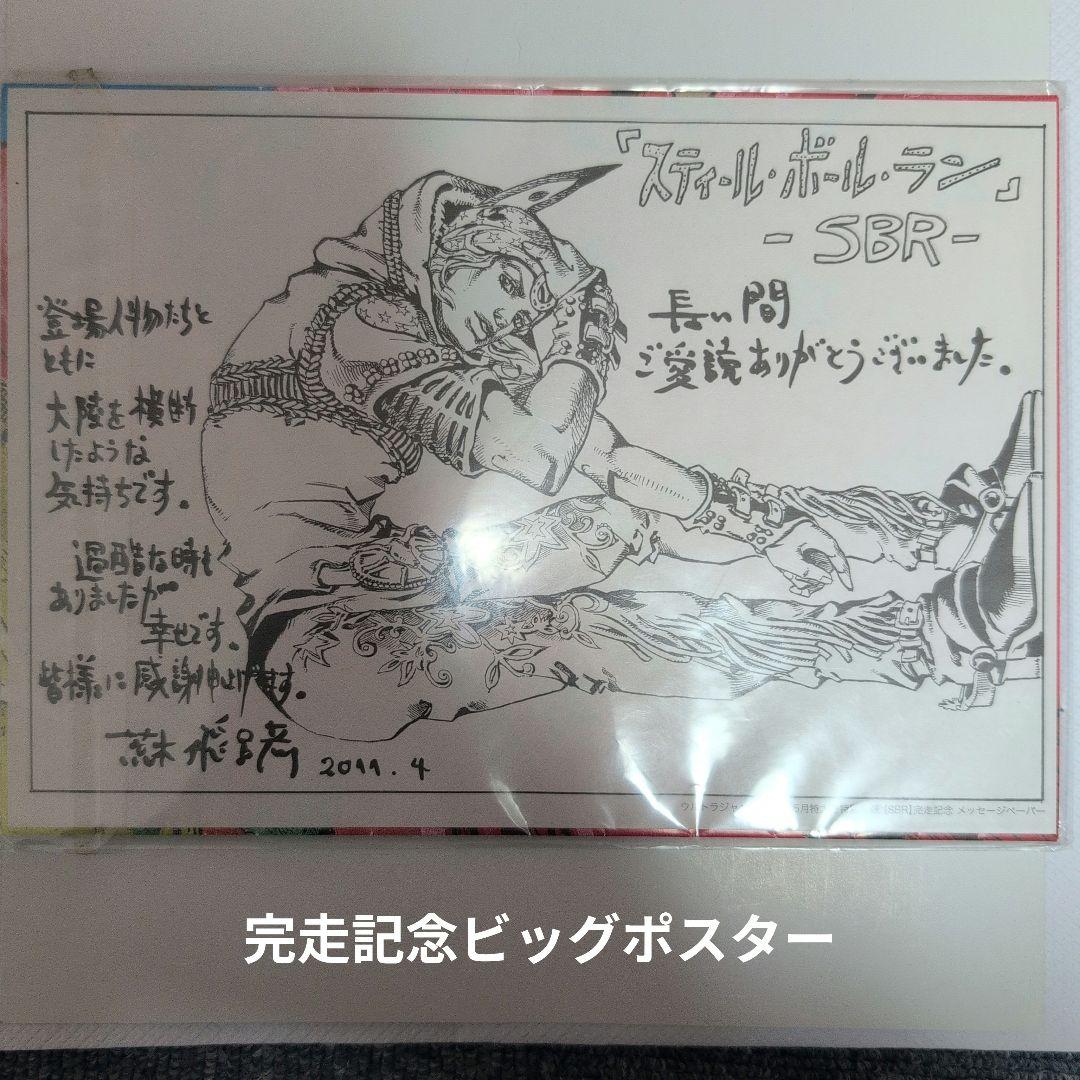 『スティール・ボール・ラン』
-SBR-
長い間
ご愛読ありがとうございました。
登場人物たちと
ともに
大陸を横断
したような
気持ちです。
過酷な時も
ありましたが
幸せです。
皆様に感謝申し上げます。
荒木飛呂彦 2011.4
ウルトラジャ 5月特 【SBR】完走記念 メッセージペーパー
完走記念ビッグポスター